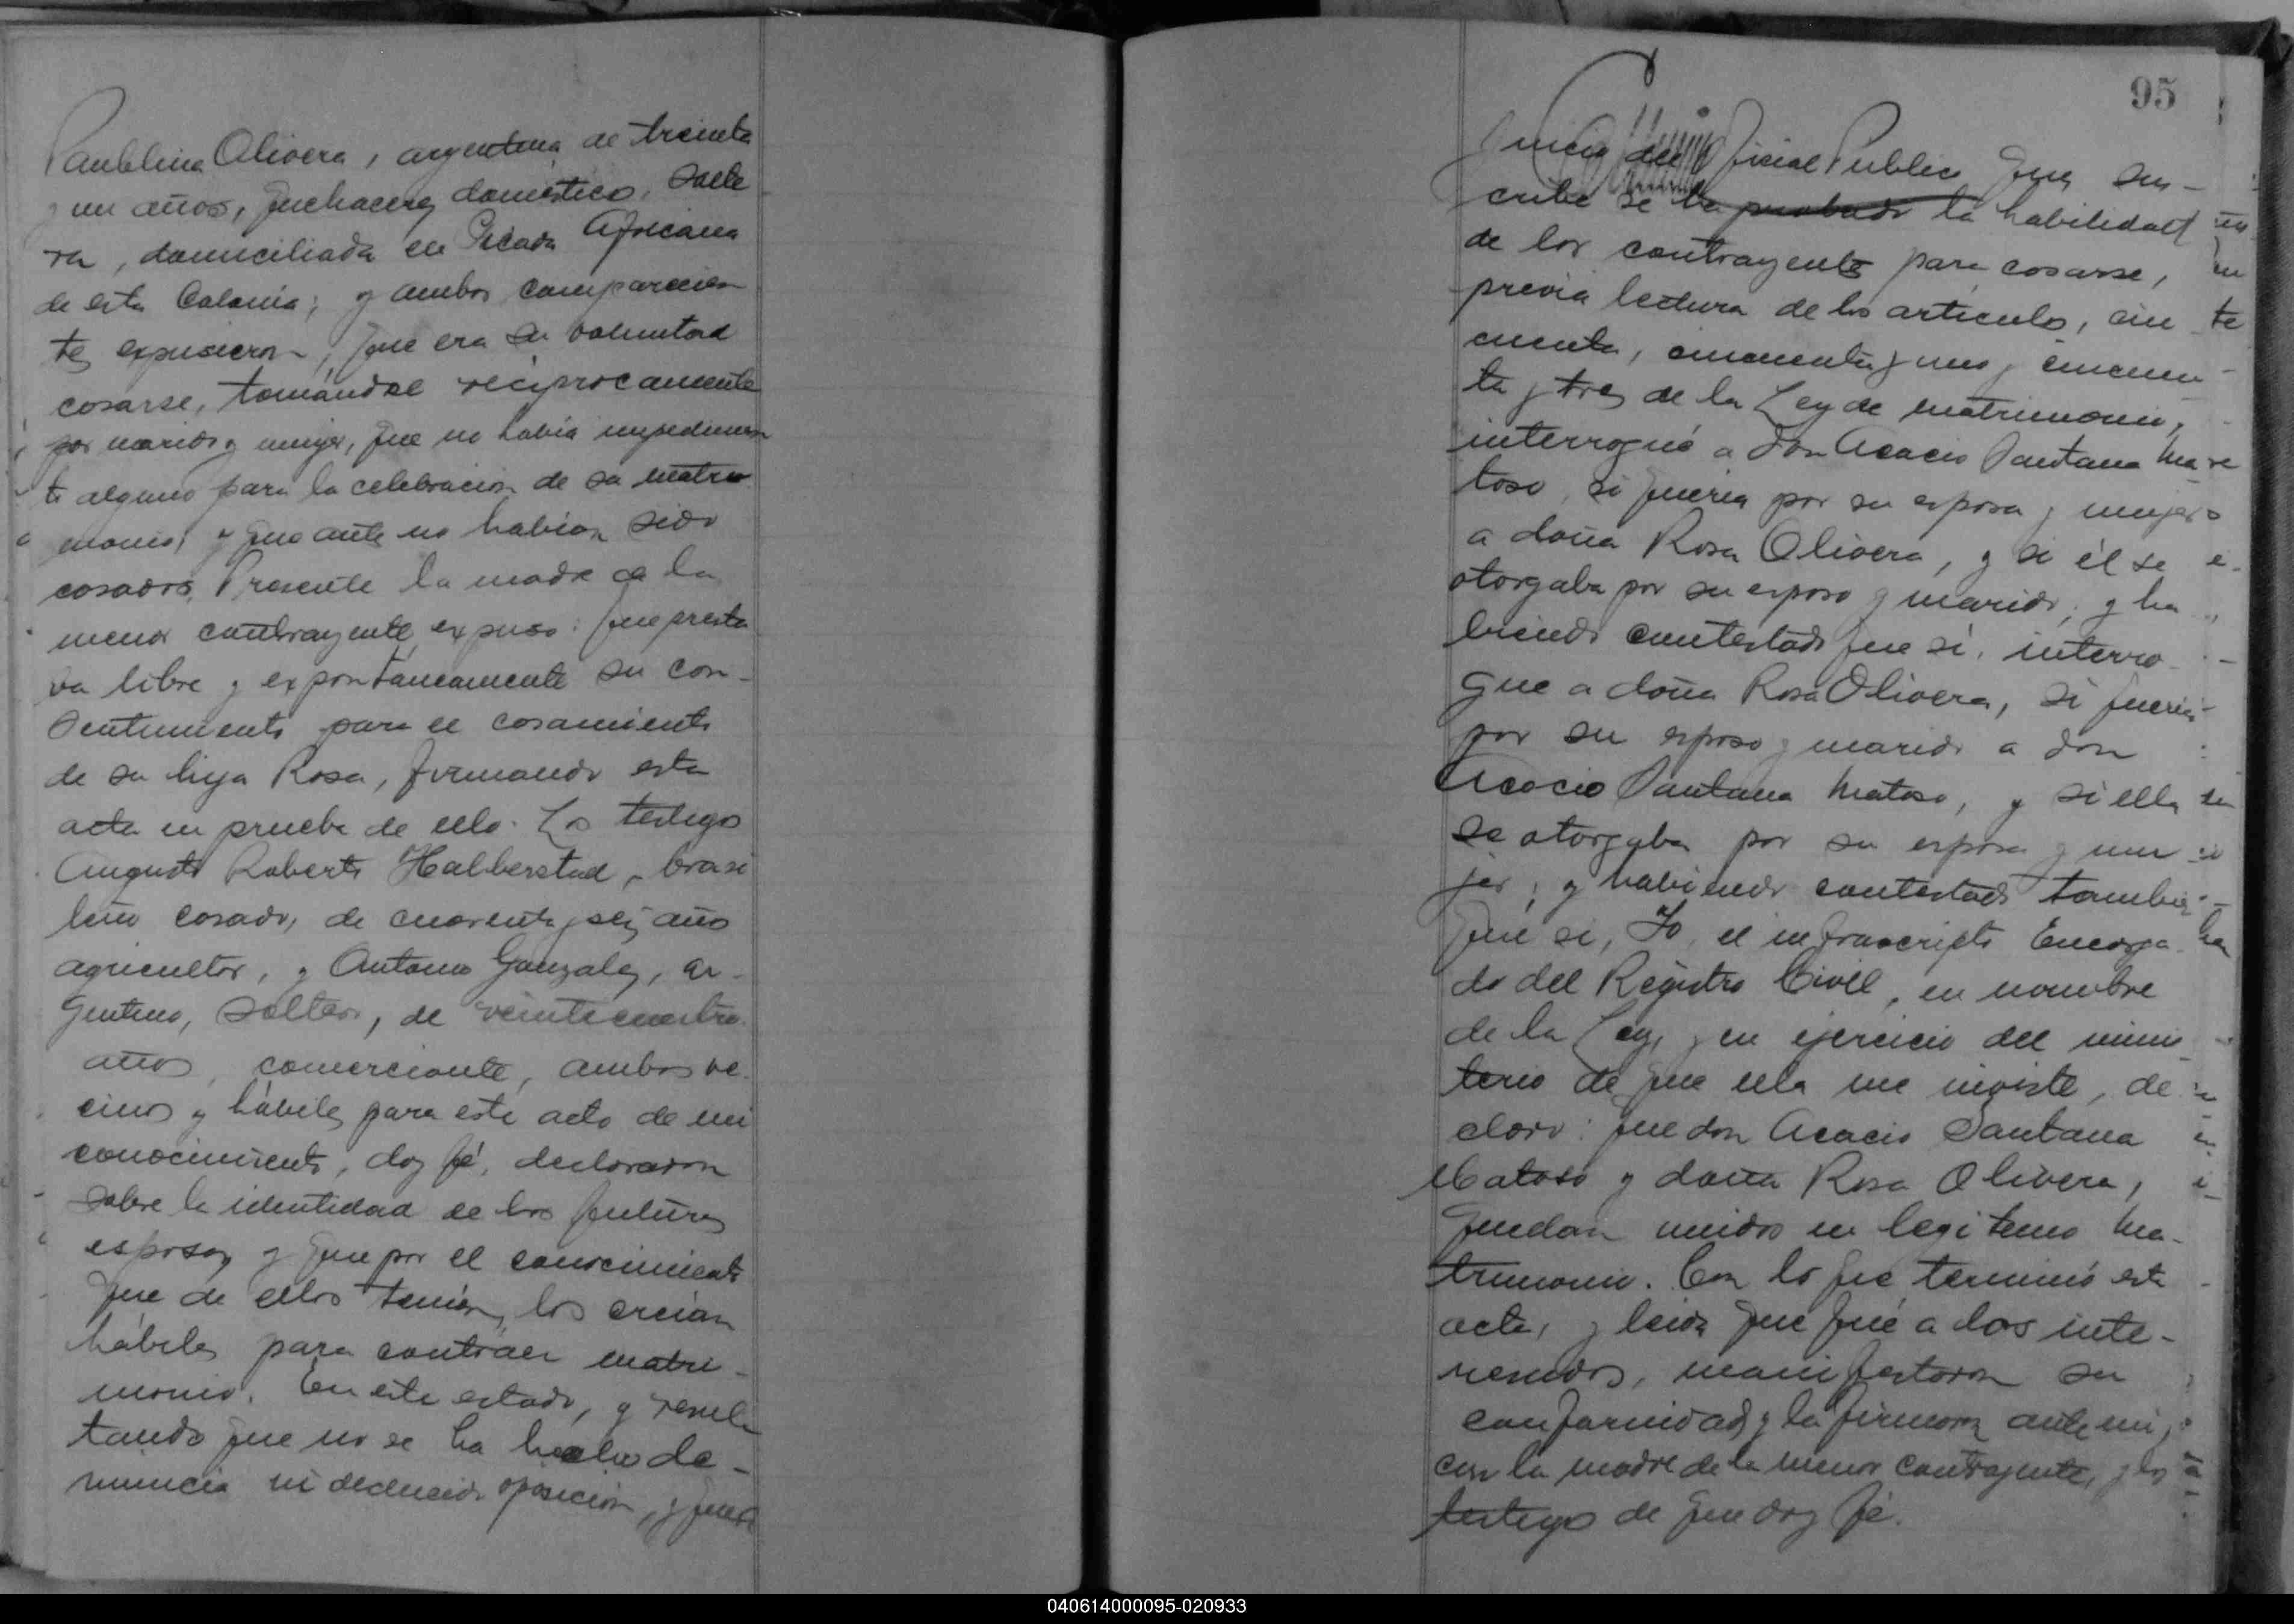 Paublina Olivera, argentina de treinta
y un años, quehaceres domestico, solte
ra, domiciliada en Picada Africana
de esta Colonia; y ambos comparecien
tes expusieron, que era su voluntad
casarse, tomándose reciprocamente
por marido y mujer, que no había impedimen
to alguno para la celebración de su matri
monio, y que antes no habian sido
casados. Presente la madre de la
menor contrayente, expuso: que presta
ba libre y expontáneamente su con-
sentimiento para el casamiento
de su hija Rosa, firmando esta
acta en prueba de ello. Los testigos
Augusto Roberto Halberstad, brasi
leño casado, de cuarenta y seis años
agricultor, y Antonio Gonzalez, ar-
gentino, soltero, de veinticuatro
años, comerciante, ambos ve-
cinos y hábiles para este acto de mi
conocimiento, doy fé, declararon
sobre la identidad de los futuros
esposos y que por el conocimiento
que de ellos tenian, los creían
hábiles para contraer matri-
monio. En este estado, y resul
tando que no se ha hecho de-
nuncia ni deducido oposición, y que a
95
juicio del Oficial Publico que sus-
cribe se ha probado la habilidad
de los contrayentes para casarse,
previa lectura de los articulos, cin
cuenta, cincuenta y uno y cincuen
ta y tres de la Ley de matrimonio,
interrogué a don Acacio Santana Ma
toso, si queria por su esposa y mujer
a doña Rosa Olivera, y si él se
otorgaba por su esposo y marido, y ha
biendo contestado que si, interro-
gue a doña Rosa Olivera, si queria
por su esposo y marido a don
Acacio Santana Matoso, y si ella
se otorgaba por su esposa y mu
jer; y habiendo contestado tambien
que si, Yo, el infrascripto Encarga
do del Registro Civil, en nombre
de la Ley, y en ejercicio del minis
terio de que ella me inviste, de
claro: que don Acacio Santana
Matoso y doña Rosa Olivera,
quedan unidos en legitimo ma-
trimonio. Con lo que terminó esta
acta, y leida que fué a los inte-
resados, manifestaron su
conformidad y la firmaron ante mi,
con la madre de la menor contrayente, y los
testigos de que doy fé.
040614000095-020933